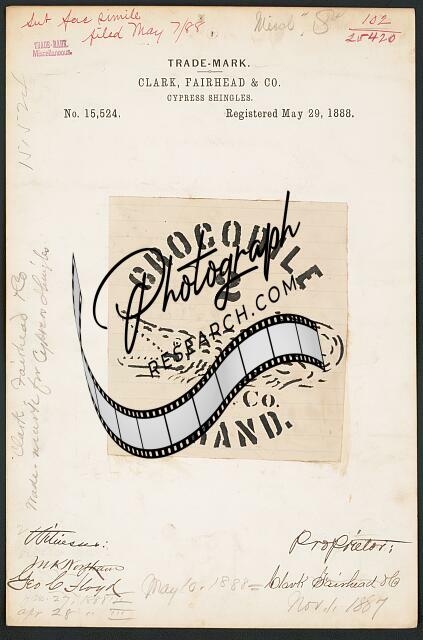 Sub fac simile
filed May 7/88.
Miscl.
102
25420
TRADE-MARK.
Miscellaneous.
TRADE-MARK.
CLARK, FAIRHEAD & CO.
CYPRESS SHINGLES.
No. 15,524.
Registered May 29, 1888.
15,524
Clark Fairhead & Co
Trade-mark for Cypress Shingles
CROCODILE
Photograph
RESEARCH.COM
Co.
Witnesses:
Geo C Floyd
Proprietor:
Clark Fairhead & Co
May 10. 1888 =
Nov. 1. 1887
apr 28